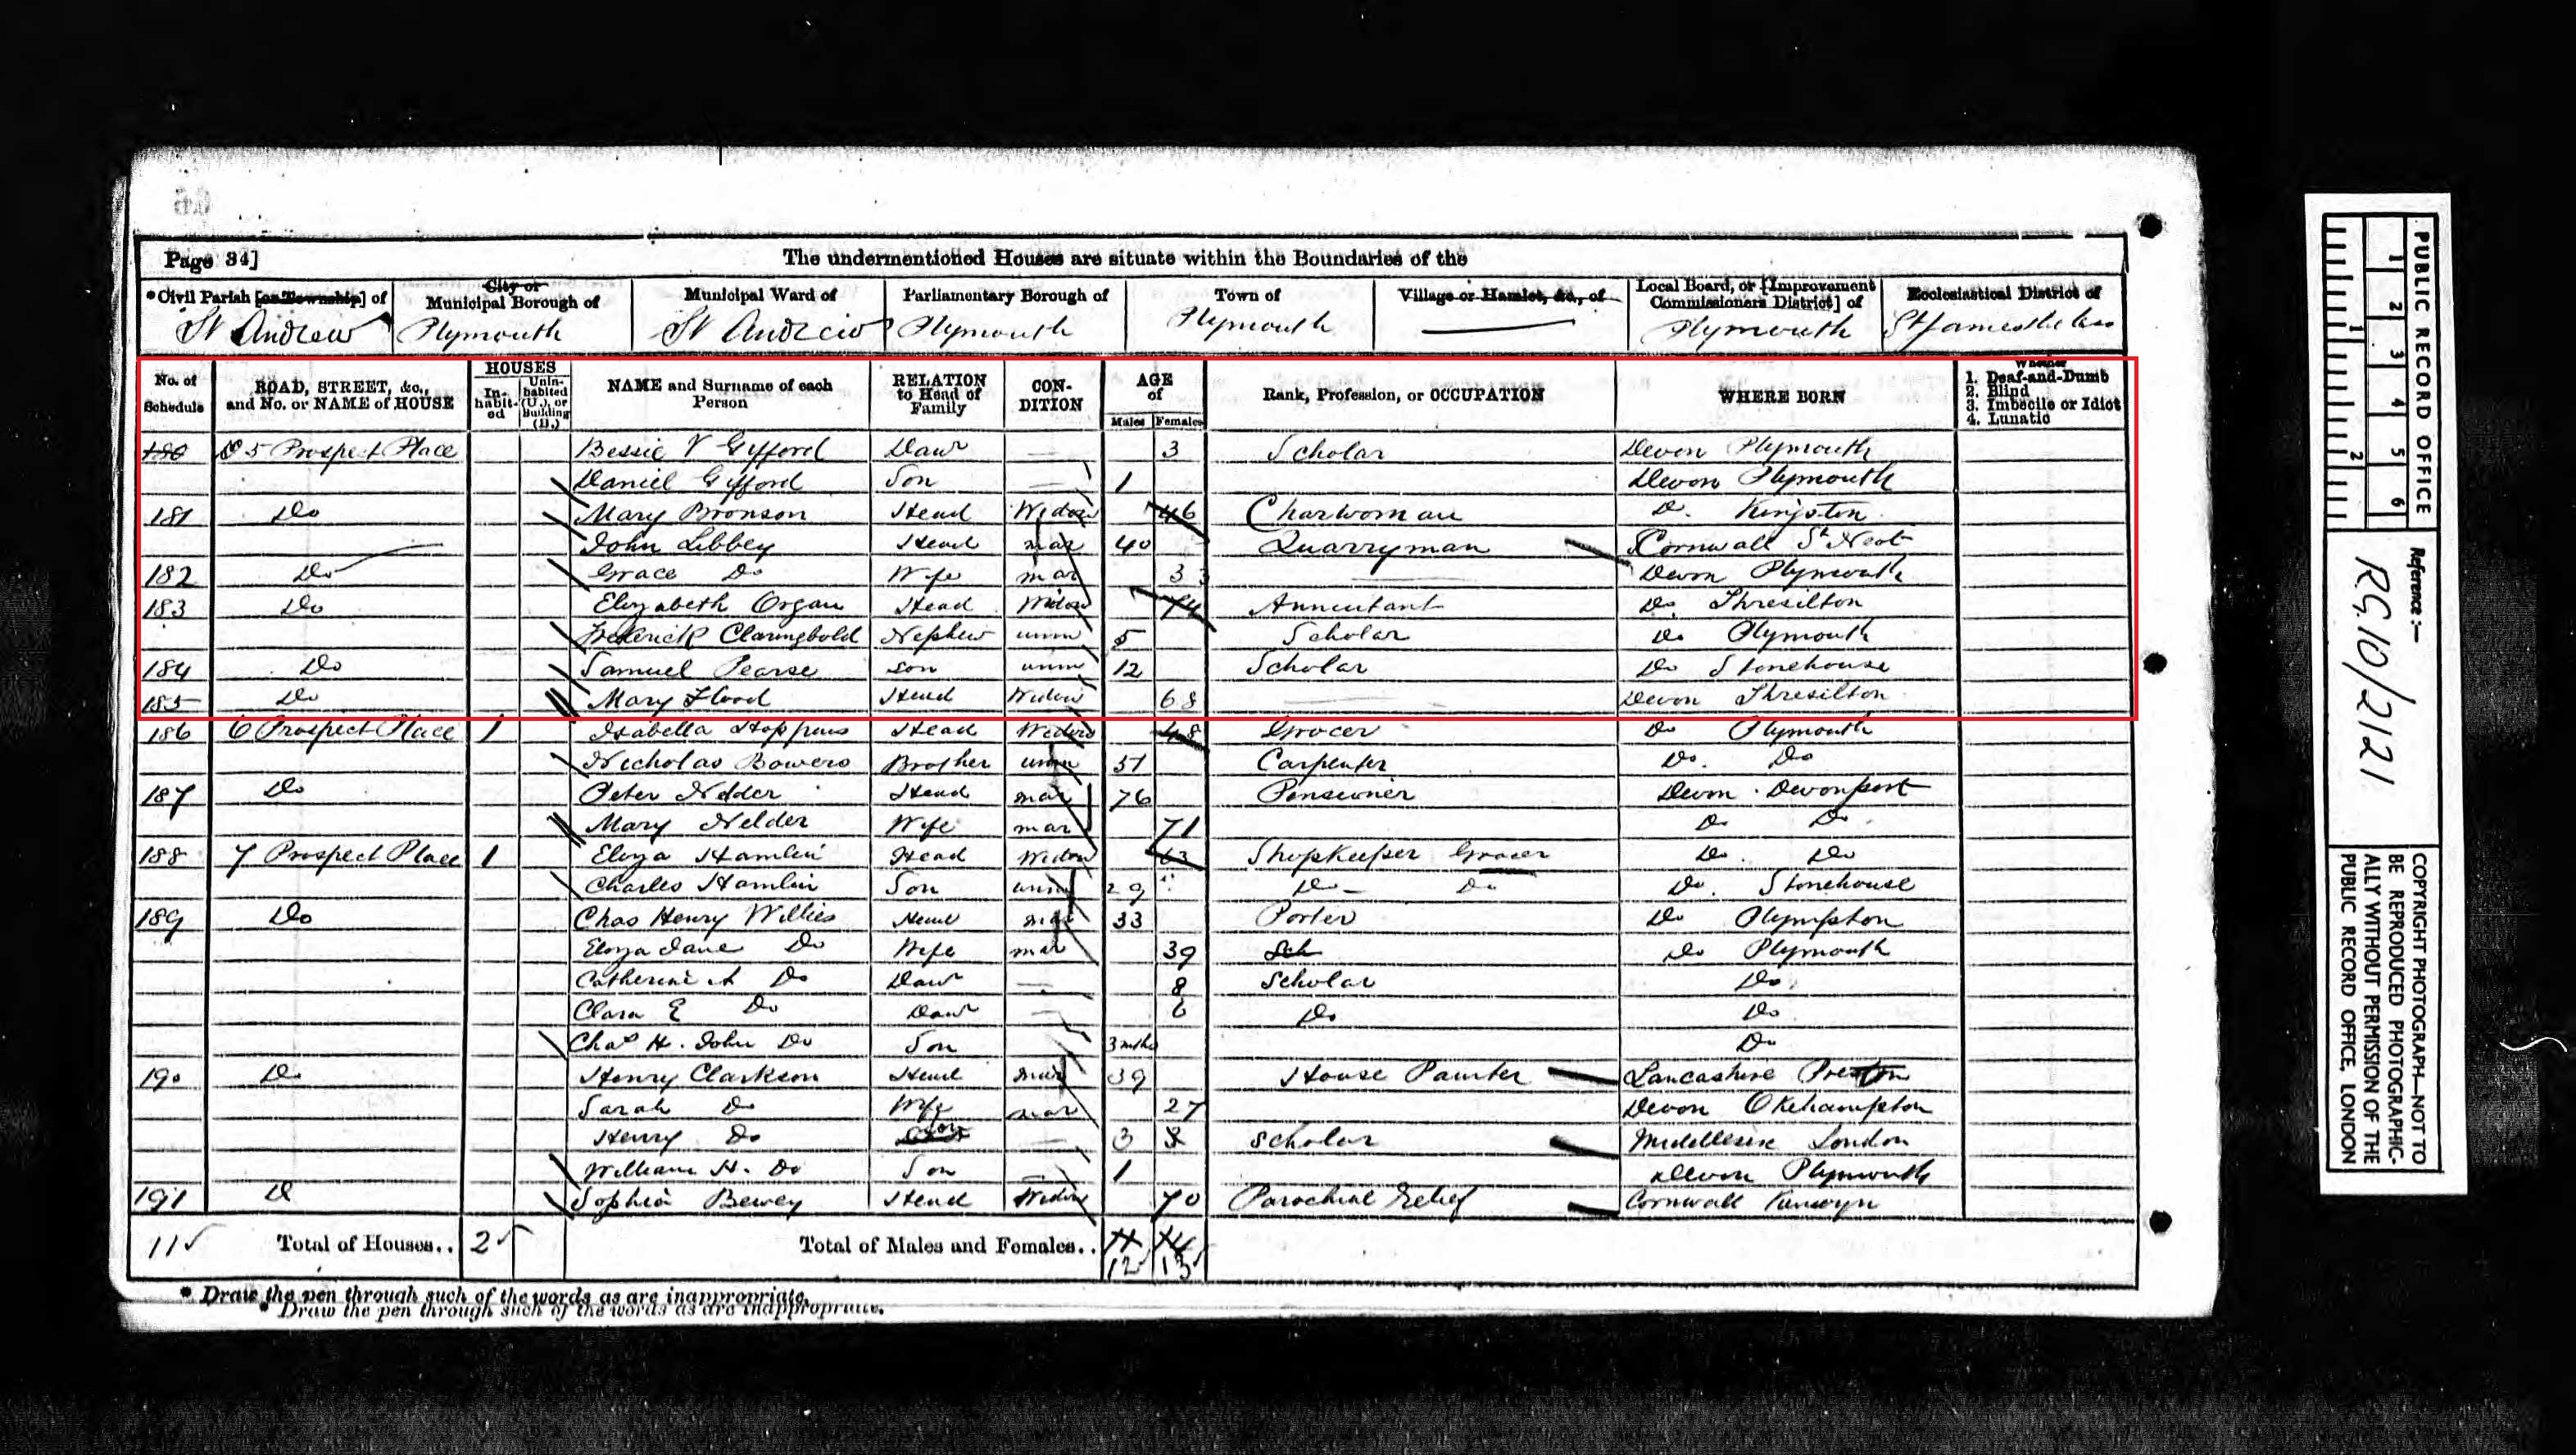 Page 34] The undermentioned Houses are situate within the Boundaries of the
*Civil Parish [or Township] of City or Municipal Borough of Municipal Ward of Parliamentary Borough of Town of Village or Hamlet, &c., of Local Board, or [Improvement Commissioners District] of Ecclesiastical District of
St Andrew Plymouth St Andrew Plymouth Plymouth Plymouth St James the less
No. of Schedule ROAD, STREET, &c., and No. or NAME of HOUSE HOUSES In-habit-ed Unin-habited (U.), or Building (B.) NAME and Surname of each Person RELATION to Head of Family CON-DITION AGE of Males Females Rank, Profession, or OCCUPATION WHERE BORN Whether 1. Deaf-and-Dumb 2. Blind 3. Imbecile or Idiot 4. Lunatic
180 5 Prospect Place Bessie V Gifford Daur 3 Scholar Devon Plymouth
Daniel Gifford Son 1 Devon Plymouth
181 Do Mary Bronson Head Widow 46 Charwoman Do. Kingston
John Libbey Head mar 40 Quarryman Cornwall St Neot
182 Do Grace Do Wife mar 33 Devon Plymouth
183 Do Elizabeth Organ Head Widow 74 Annuitant Do Threxilton
Frederick Claringbold Nephew unm 5 Scholar Do Plymouth
184 Do Samuel Pearse Son unm 12 Scholar Do Stonehouse
185 Do Mary Flood Head Widow 68 Devon Threxilton
186 6 Prospect Place 1 Isabella Hoppins Head Widow 48 Grocer Do Plymouth
Nicholas Bowers Brother unm 51 Carpenter Do. Do
187 Do Peter Nelder Head mar 76 Pensioner Devon Devonport
Mary Nelder Wife mar 71 Do Do
188 7 Prospect Place 1 Eliza Hamlin Head Widow 63 Shopkeeper Grocer Do. Do
Charles Hamlin Son unm 29 Do Do Do. Stonehouse
189 Do Chas Henry Willies Head mar 33 Porter Do Plympton
Eliza Jane Do Wife mar 39 Sch Do Plymouth
Catherine A Do Daur 8 Scholar Do
Clara E Do Daur 6 Do Do
Chas H. John Do Son 3 mths Do
190 Do Henry Clarkson Head mar 39 House Painter Lancashire Preston
Sarah Do Wife mar 27 Devon Okehampton
Henry Do Son 3 3 Scholar Middlesex London
William H. Do Son 1 Devon Plymouth
191 Do Sophia Bewey Head Widow 70 Parochial Relief Cornwall Kenwyn
11 Total of Houses.. 2 Total of Males and Females.. 11 14
12 13
* Draw the pen through such of the words as are inappropriate.
* Draw the pen through such of the words as are inappropriate.
PUBLIC RECORD OFFICE
1 2 3 4 5 6
1 2
Reference :-
RG 10/2121
COPYRIGHT PHOTOGRAPH—NOT TO BE REPRODUCED PHOTOGRAPHIC-ALLY WITHOUT PERMISSION OF THE PUBLIC RECORD OFFICE, LONDON